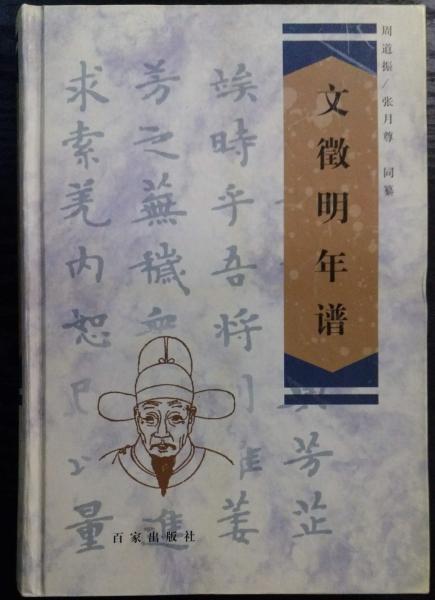 周道振/张月尊 同纂
文徵明年谱
芳芷
竢時乎吾將
芳之蕪穢 進
求索羌内恕 量
百家出版社